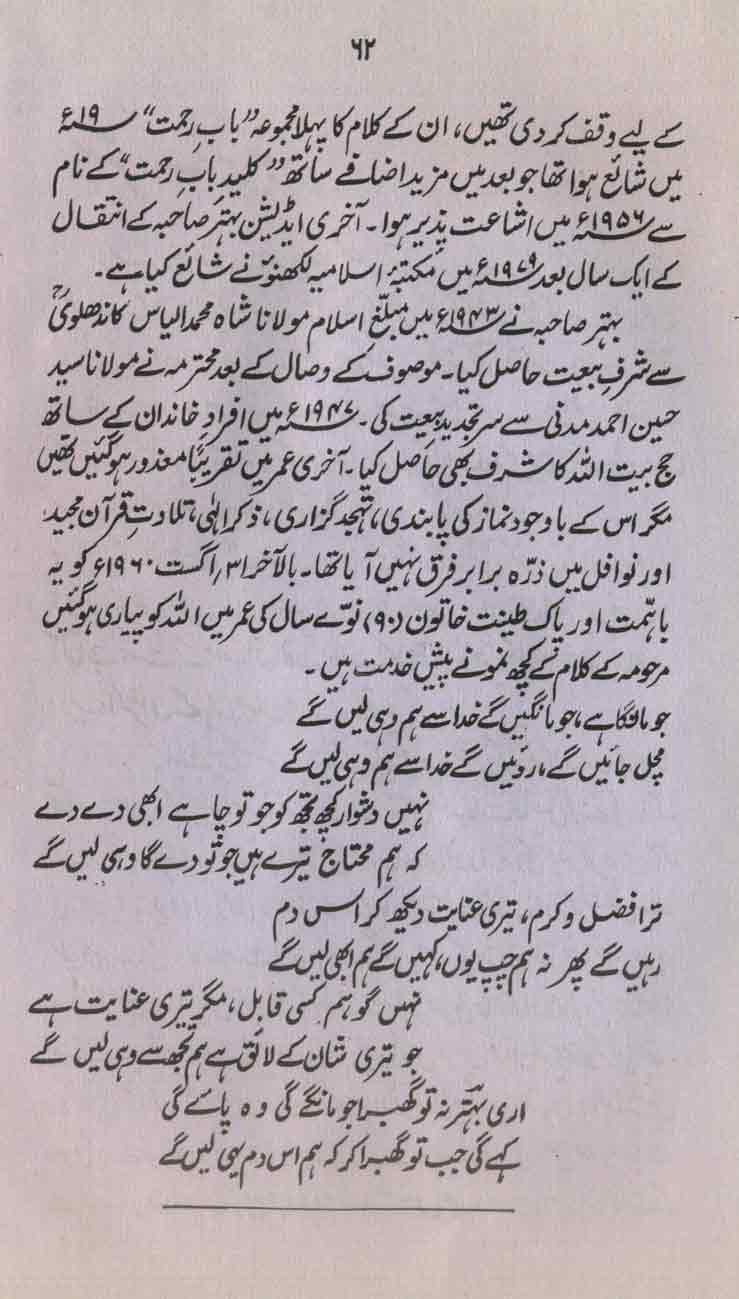 ۶۲
کے لیے وقف کر دی تھیں، ان کے کلام کا پہلا مجموعہ "بابِ رحمت" ۱۹ء
میں شائع ہوا تھا جو بعد میں مزید اضافے ساتھ "کلیدِ بابِ رحمت" کے نام
سے ۱۹۵۶ء میں اشاعت پذیر ہوا۔ آخری ایڈیشن بہتر صاحبہ کے انتقال
کے ایک سال بعد ۱۹۷۹ء میں مکتبۂ اسلامیہ لکھنؤ نے شائع کیا ہے۔
بہتر صاحبہ نے ۱۹۴۳ء میں مبلّغِ اسلام مولانا شاہ محمد الیاس کاندھلویؒ
سے شرفِ بیعت حاصل کیا۔ موصوف کے وصال کے بعد محترمہ نے مولانا سید
حسین احمد مدنی سے سر تجدیدِ بیعت کی۔ ۱۹۴۷ء میں افرادِ خاندان کے ساتھ
حج بیت اللہ کا شرف بھی حاصل کیا۔ آخری عمر میں تقریباً معذور ہو گئیں تھیں
مگر اس کے باوجود نماز کی پابندی، تہجد گزاری، ذکرِ الٰہی، تلاوتِ قرآن مجید
اور نوافل میں ذرّہ برابر فرق نہیں آیا تھا۔ بالآخر ۳۱؍ اگست ۱۹۶۰ء کو یہ
باہمّت اور پاک طینت خاتون (۹۰) نوّے سال کی عمر میں اللہ کو پیاری ہو گئیں
مرحومہ کے کلام کے کچھ نمونے پیشِ خدمت ہیں۔
جو مانگا ہے، جو مانگیں گے خدا سے ہم وہی لیں گے
مچل جائیں گے، روئیں گے خدا سے ہم وہی لیں گے
نہیں دشوار کچھ تجھ کو جو تو چاہے ابھی دے دے
کہ ہم محتاج تیرے ہیں جو تو دے گا وہی لیں گے
ترا فضل و کرم، تیری عنایت دیکھ کر اس دم
رہیں گے پھر نہ ہم چپ یوں، کہیں گے ہم ابھی لیں گے
نہیں گو ہم کسی قابل، مگر تیری عنایت ہے
جو تیری شان کے لائق ہے ہم تجھ سے وہی لیں گے
اری بہتر نہ تو گھبرا جو مانگے گی وہ پائے گی
کہے گی جب تو گھبرا کر کہ ہم اس دم یہی لیں گے